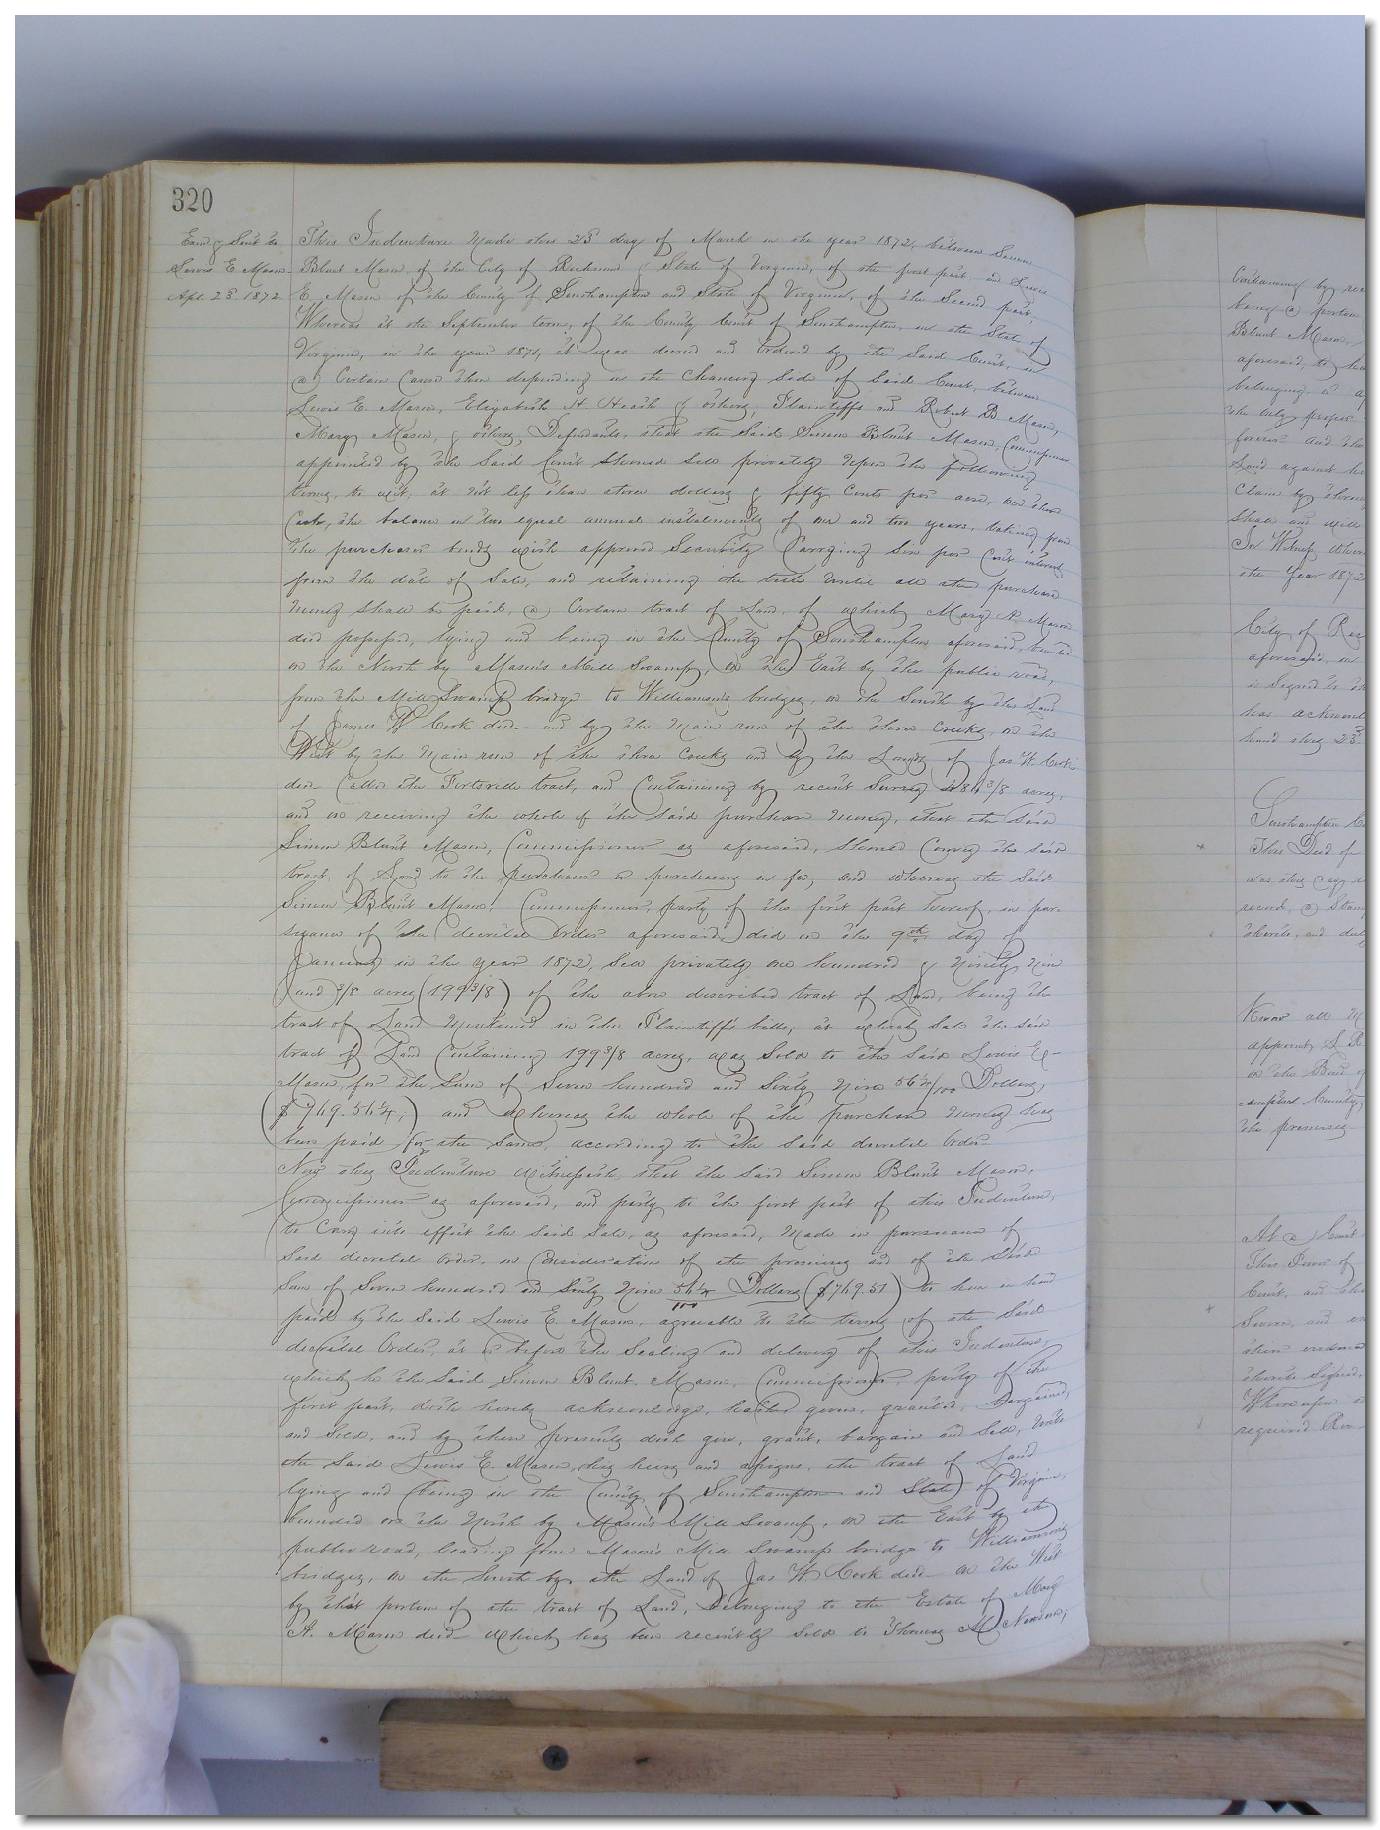 320
Exd & Sent to
Lewis E Mason
Apl. 23d 1872
This Indenture Made this 23d day of March in the year 1872, between Simon
Blunt Mason, of the City of Richmond & State of Virginia, of the first part and Lewis
E. Mason of the County of Southampton and State of Virginia, of the Second part,
Whereas at the September term, of the County Court of Southampton, in the State of
Virginia, in the year 1871, it was decreed and Ordered by the Said Court, in
a Certain Cause then depending in the Chancery Side of Said Court, between
Lewis E. Mason, Elizabeth H Heath & others, Plaintiffs and Robert B Mason,
Mary Mason, & others, Defendants, that the Said Simon Blunt Mason, Commissioner
appointed by the Said Court Should Sell privately upon the following
terms, to wit, at not less than three dollars & fifty Cents per acre, one third
Cash, the balance in two equal annual instalments of one and two years, taking from
the purchaser bonds with approved Security Carrying Six per Cent interest,
from the date of Sale, and retaining the title until all the purchase
money Shall be paid, a Certain tract of Land, of which Mary A. Mason
died possessed, lying and being in the County of Southampton aforesaid, bounded
on the North by Mason's Mill Swamp, on the East by the public road,
from the Mill Swamp bridge to Williamson's bridges, on the South by the Land
of James W Cook decd and by the Main run of the three creeks, on the
West by the Main run of the three Creeks and by the Lands of Jas W. Cook
decd Called the Fortsville tract, and Containing by recent Survey 3/8 acres,
and on receiving the whole of the said purchase Money, that the Said
Simon Blunt Mason, Commissioner as aforesaid, Should Convey the said
tract, of Land to the purchaser or purchasers in fee, and whereas the Said
Simon Blunt Mason, Commissioner, party of the first part hereof, in pur-
suance of the decretal Order aforesaid, did on the 9th day of
January in the year 1872, Sell privately one hundred & Ninety Nine
and 3/8 acres (199 3/8) of the above described tract of Land, being the
tract of Land Mentioned in the Plaintiff's bill, at which Sale the said
tract of Land Containing 199 3/8 acres, was Sold to the Said Lewis E-
Mason, for the Sum of Seven hundred and Sixty Nine 56 1/4/100 Dollars,
$769.56 1/4,) and Whereas the whole of the Purchase Money has
been paid for the Same, according to the Said decretal Order-
Now this Indenture Witnesseth, that the Said Simon Blunt Mason,
Commissioner as aforesaid, and party to the first part of this Indenture,
to Carry into effect the Said Sale, as aforesaid, Made in pursuance of
Said decretal Order, in Consideration of the premises and of the Said
Sum of Seven hundred and Sixty Nine 56 1/4/100 Dollars ($769.51) to him in hand
paid by the Said Lewis E. Mason, agreeable to the terms of the Said
decretal Order, at or before the Sealing and delivery of this Indenture,
which he the Said Simon Blunt Mason, Commissioner, party of the
first part, doth hereby acknowledge, hath given, granted, bargained,
and Sold, and by these presents doth give, grant, bargain and Sell, unto
the Said Lewis E. Mason, his heirs and assigns, the tract of Land
lying and being in the County of Southampton and State of Virginia,
bounded on the North by Mason's Mill Swamp, on the East by the
public road, leading from Mason's Mill Swamp bridge to Williamson's
bridges, on the South by the Land of Jas W. Cook decd on the West
by that portion of the tract of Land, Belonging to the Estate of Mary
A. Mason decd which has been recently Sold to Thomas M Newsom,
Containing by
being a portion
Blunt Mason,
aforesaid, to
belonging,
the only proper
forever and
Land against
Claim by
Shall and will
In Witness
the Year 1872
City of
aforesaid, in
is Signed to
has acknowl
hand this 23d
Southampton
This Deed of
was this day
record, a Stamp
thereto, and duly
Know all
appoint
in the
ampton County,
the premises
At a Court
This Deed of
Court, and
Sworn, and
thereto Signed,
Whereupon
required